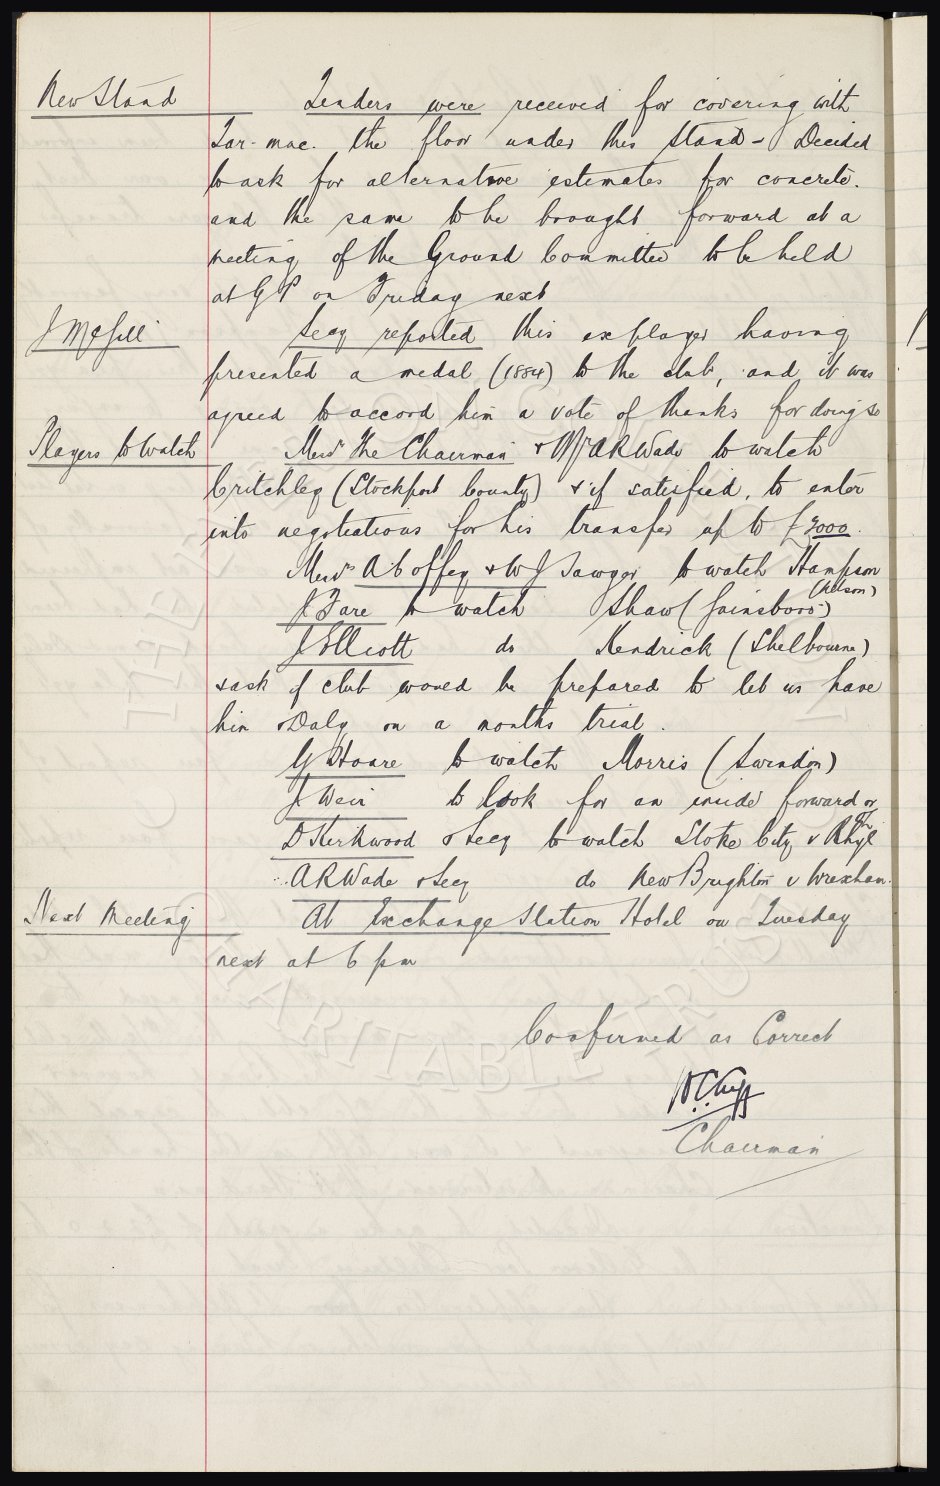 New Stand
Tenders were received for covering with
Tar-mac. the floor under this Stand - Decided
to ask for alternative estimates for concrete.
and the same to be brought forward at a
meeting of the Ground Committee to be held
at G P on Friday next
J McGill
Secy reported this explayer having
presented a medal (1884) to the club, and it was
agreed to accord him a vote of thanks for doing so
Players to Watch
Messrs The Chairman & Mr A R Wade to watch
Critchley (Stockport County) & if satisfied, to enter
into negotiations for his transfer up to £3000.
Messrs A Coffey & W J Sawyer to watch Hampson
(Nelson)
J Fare to watch Shaw (Gainsboro)
J Elliott do Kendrick (Shelbourne)
& ask if club would be prepared to let us have
him & Daly on a months trial.
G Hoare to watch Morris (Swindon)
J Weir to look for an inside forward or
D Kirkwood & Secy to watch Stoke City v Rhyl
A R Wade & Secy do New Brighton v Wrexham.
Next Meeting
At Exchange Station Hotel on Tuesday
next at 6 pm
Confirmed as Correct
Chairman
THE
CHARITABLE TRUST